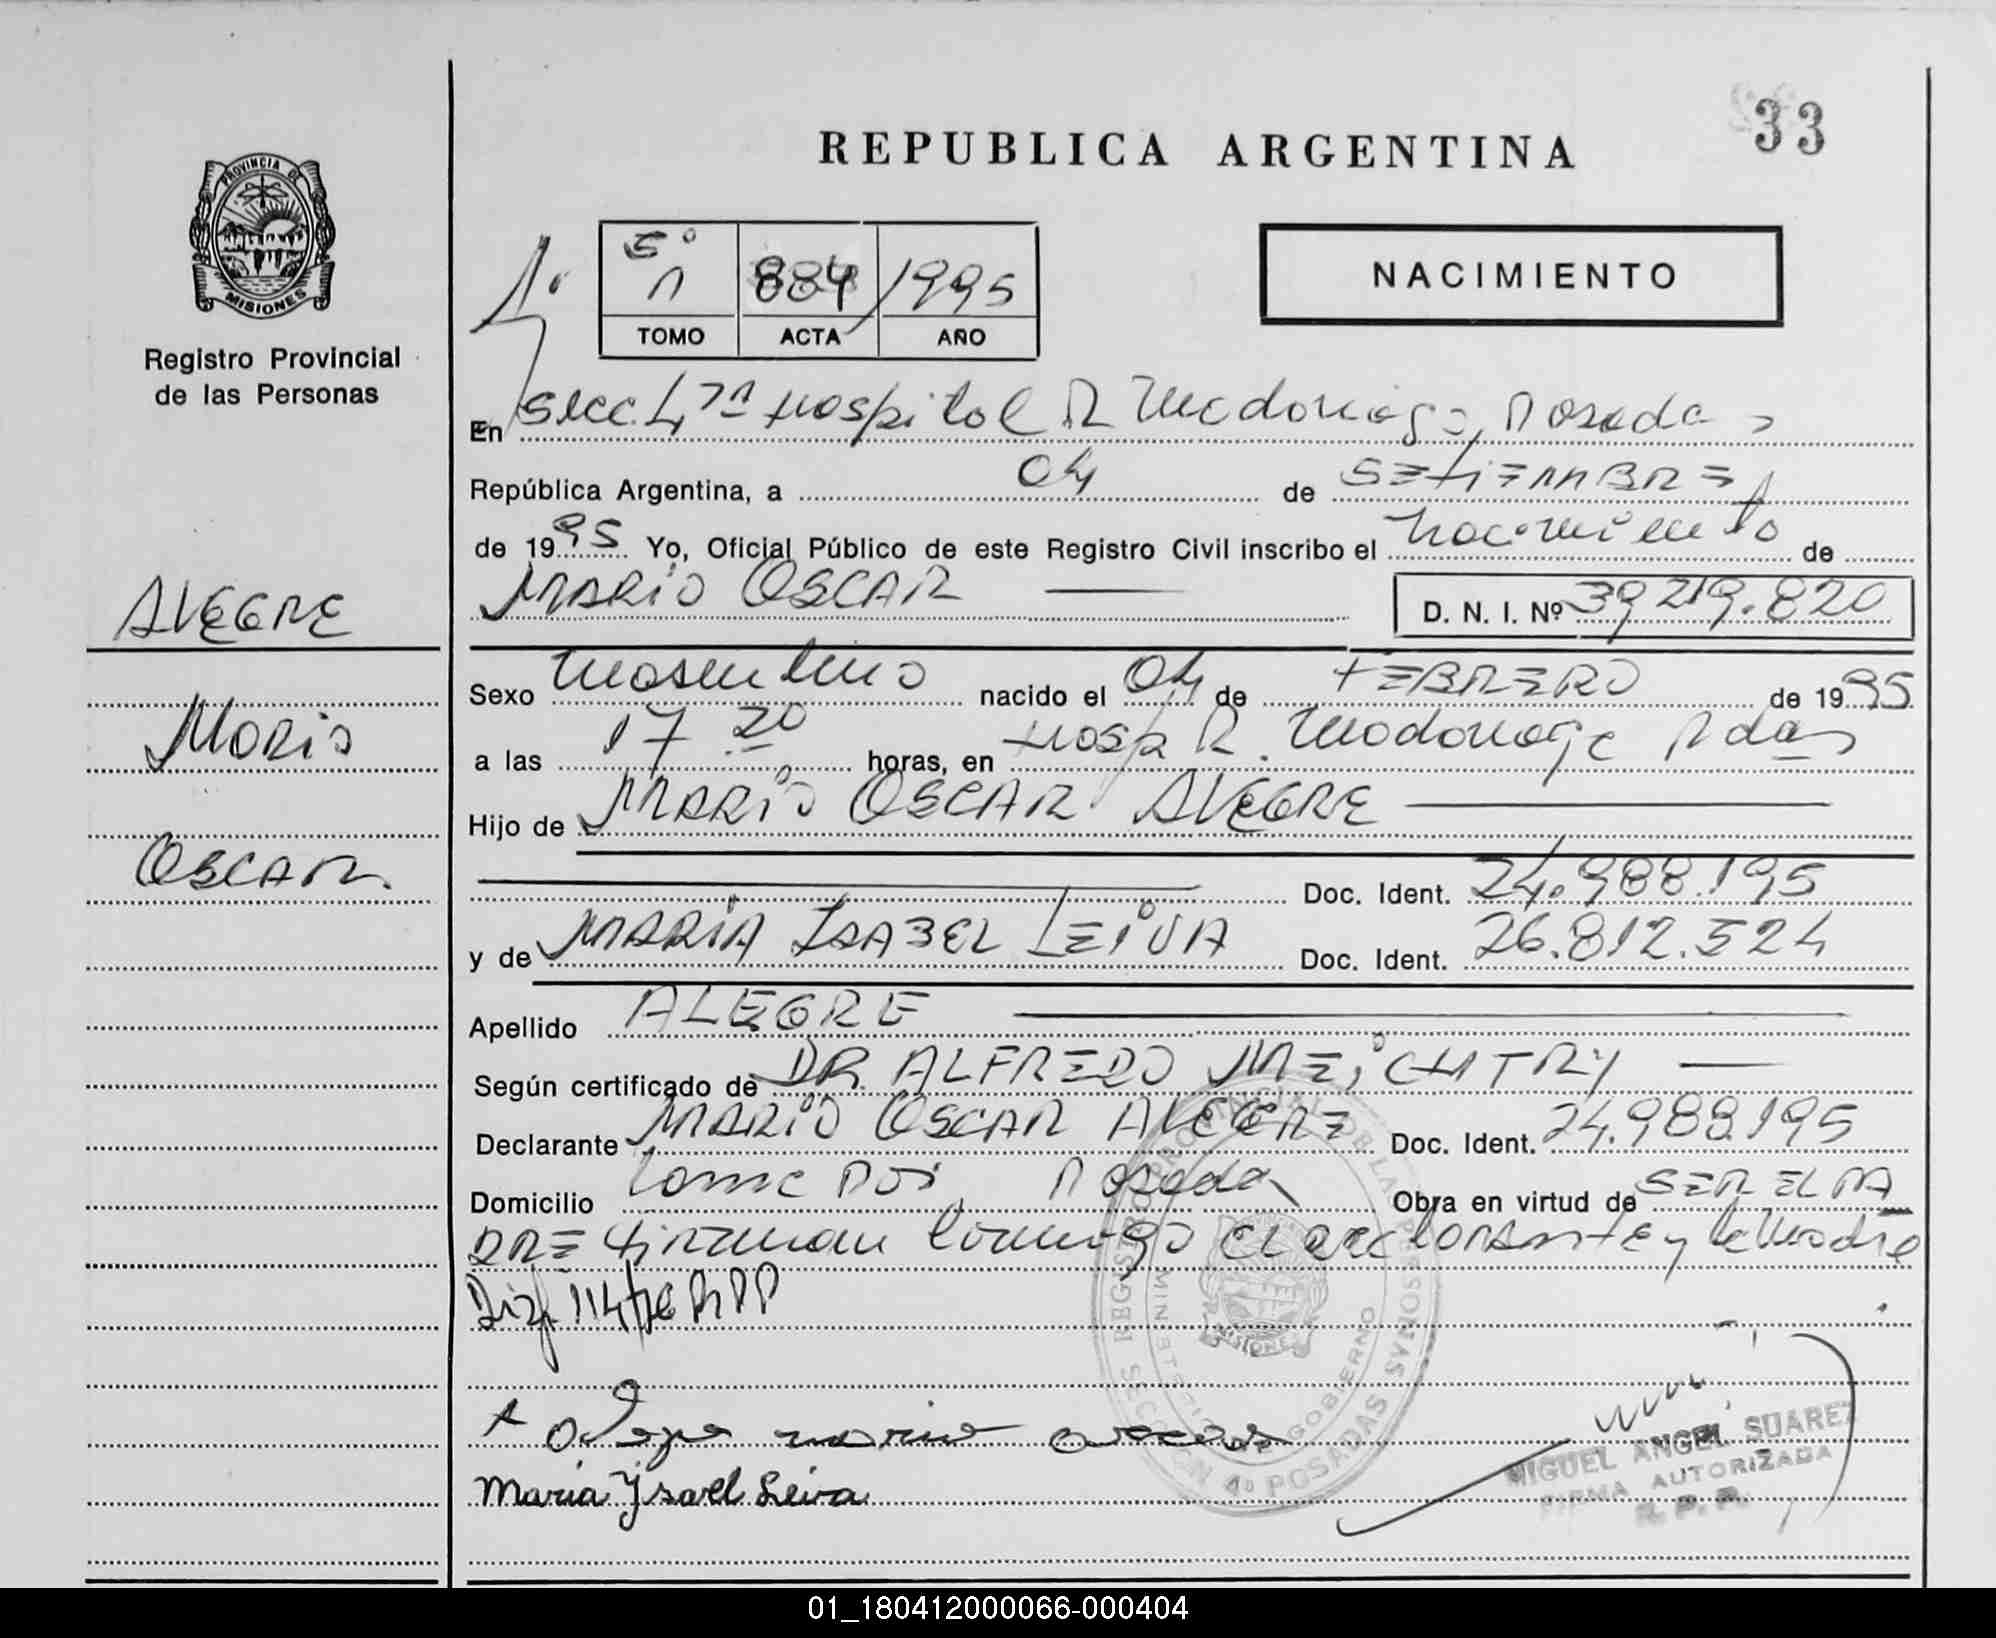 33
REPUBLICA ARGENTINA
PROVINCIA DE
MISIONES
Registro Provincial
de las Personas
1º
5º
884 1995
TOMO ACTA AÑO
NACIMIENTO
En Secc. 4ta Hospital R Madariaga, Posadas
República Argentina, a 04 de SETIEMBRE
de 1995 Yo, Oficial Público de este Registro Civil inscribo el nacimiento de
MARIO OSCAR
D. N. I. Nº 39219.820
ALEGRE
Mario
OSCAR
Sexo Masculino nacido el 04 de FEBRERO de 1995
a las 17 20 horas, en Hosp R. Madariaga Pdas
Hijo de MARIO OSCAR ALEGRE
Doc. Ident. 24.988.195
y de MARIA ISABEL LEIVA Doc. Ident. 26.812.524
Apellido ALEGRE
Según certificado de DR. ALFREDO MEICHTRY
Declarante MARIO OSCAR ALEGRE Doc. Ident. 24.988.195
Domicilio Posadas Obra en virtud de SER EL PA
DRE Firman conmigo el declarante y la Madre
114/76 RPP
mario oscar
Maria Ysavel Leiva
REGISTRO PROVINCIAL DE LAS PERSONAS
MINISTERIO DE GOBIERNO
MISIONES
SECCION 4º POSADAS
MIGUEL ANGEL SUAREZ
FIRMA AUTORIZADA
R. P. P.
01_180412000066-000404